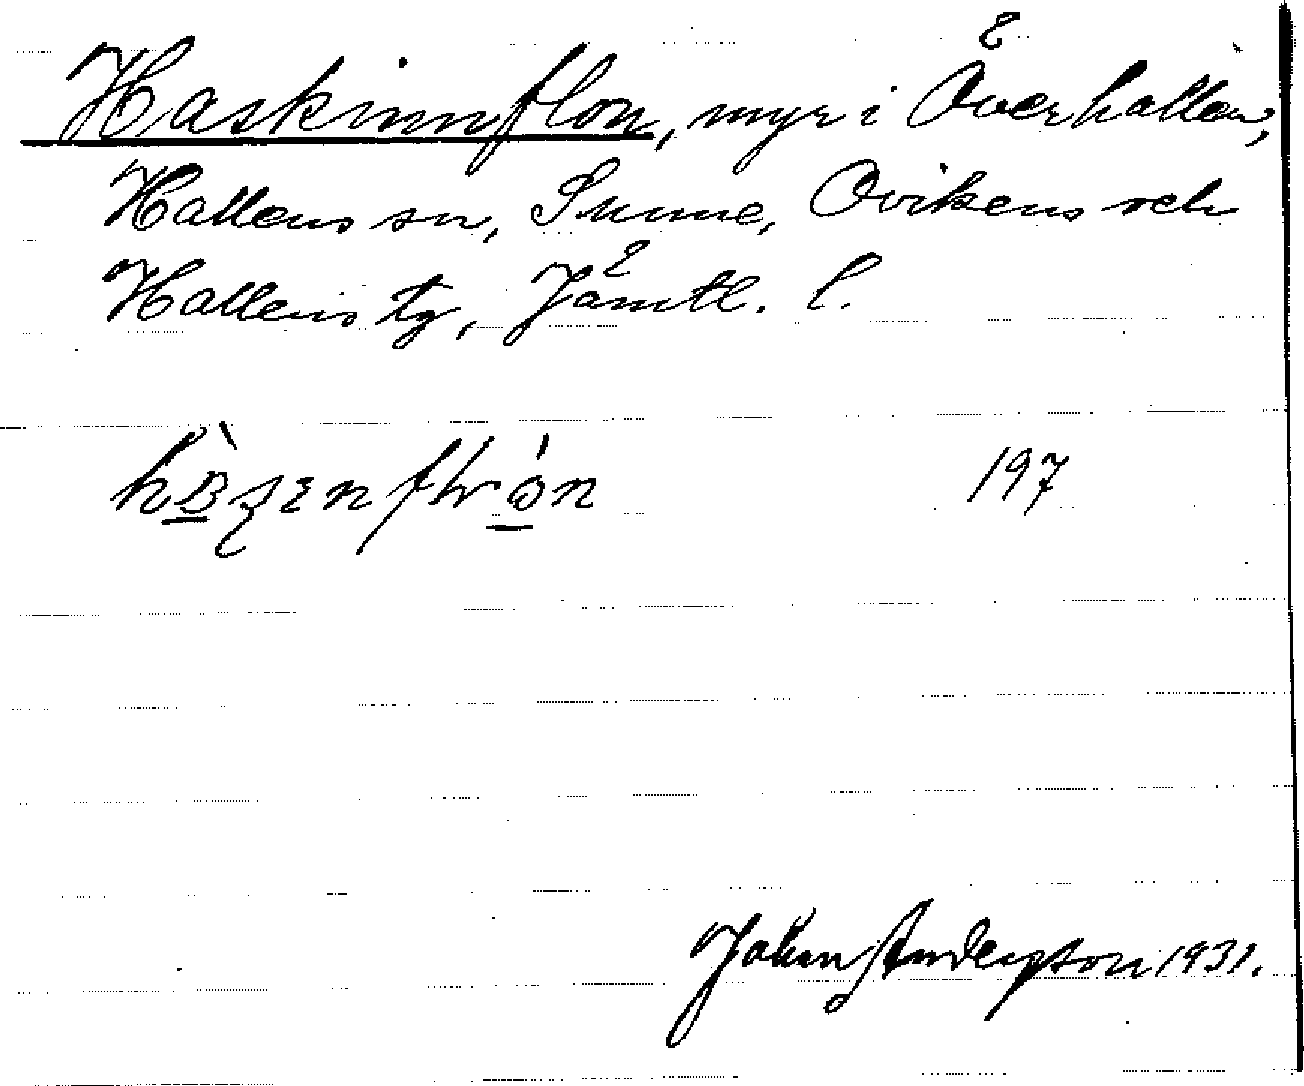 Haskinnflon, myr i Överhallen,
Hallens sn, Sunne, Ovikens och
Hallens tg, Jämtl. l.
197
John Anderson 1931.